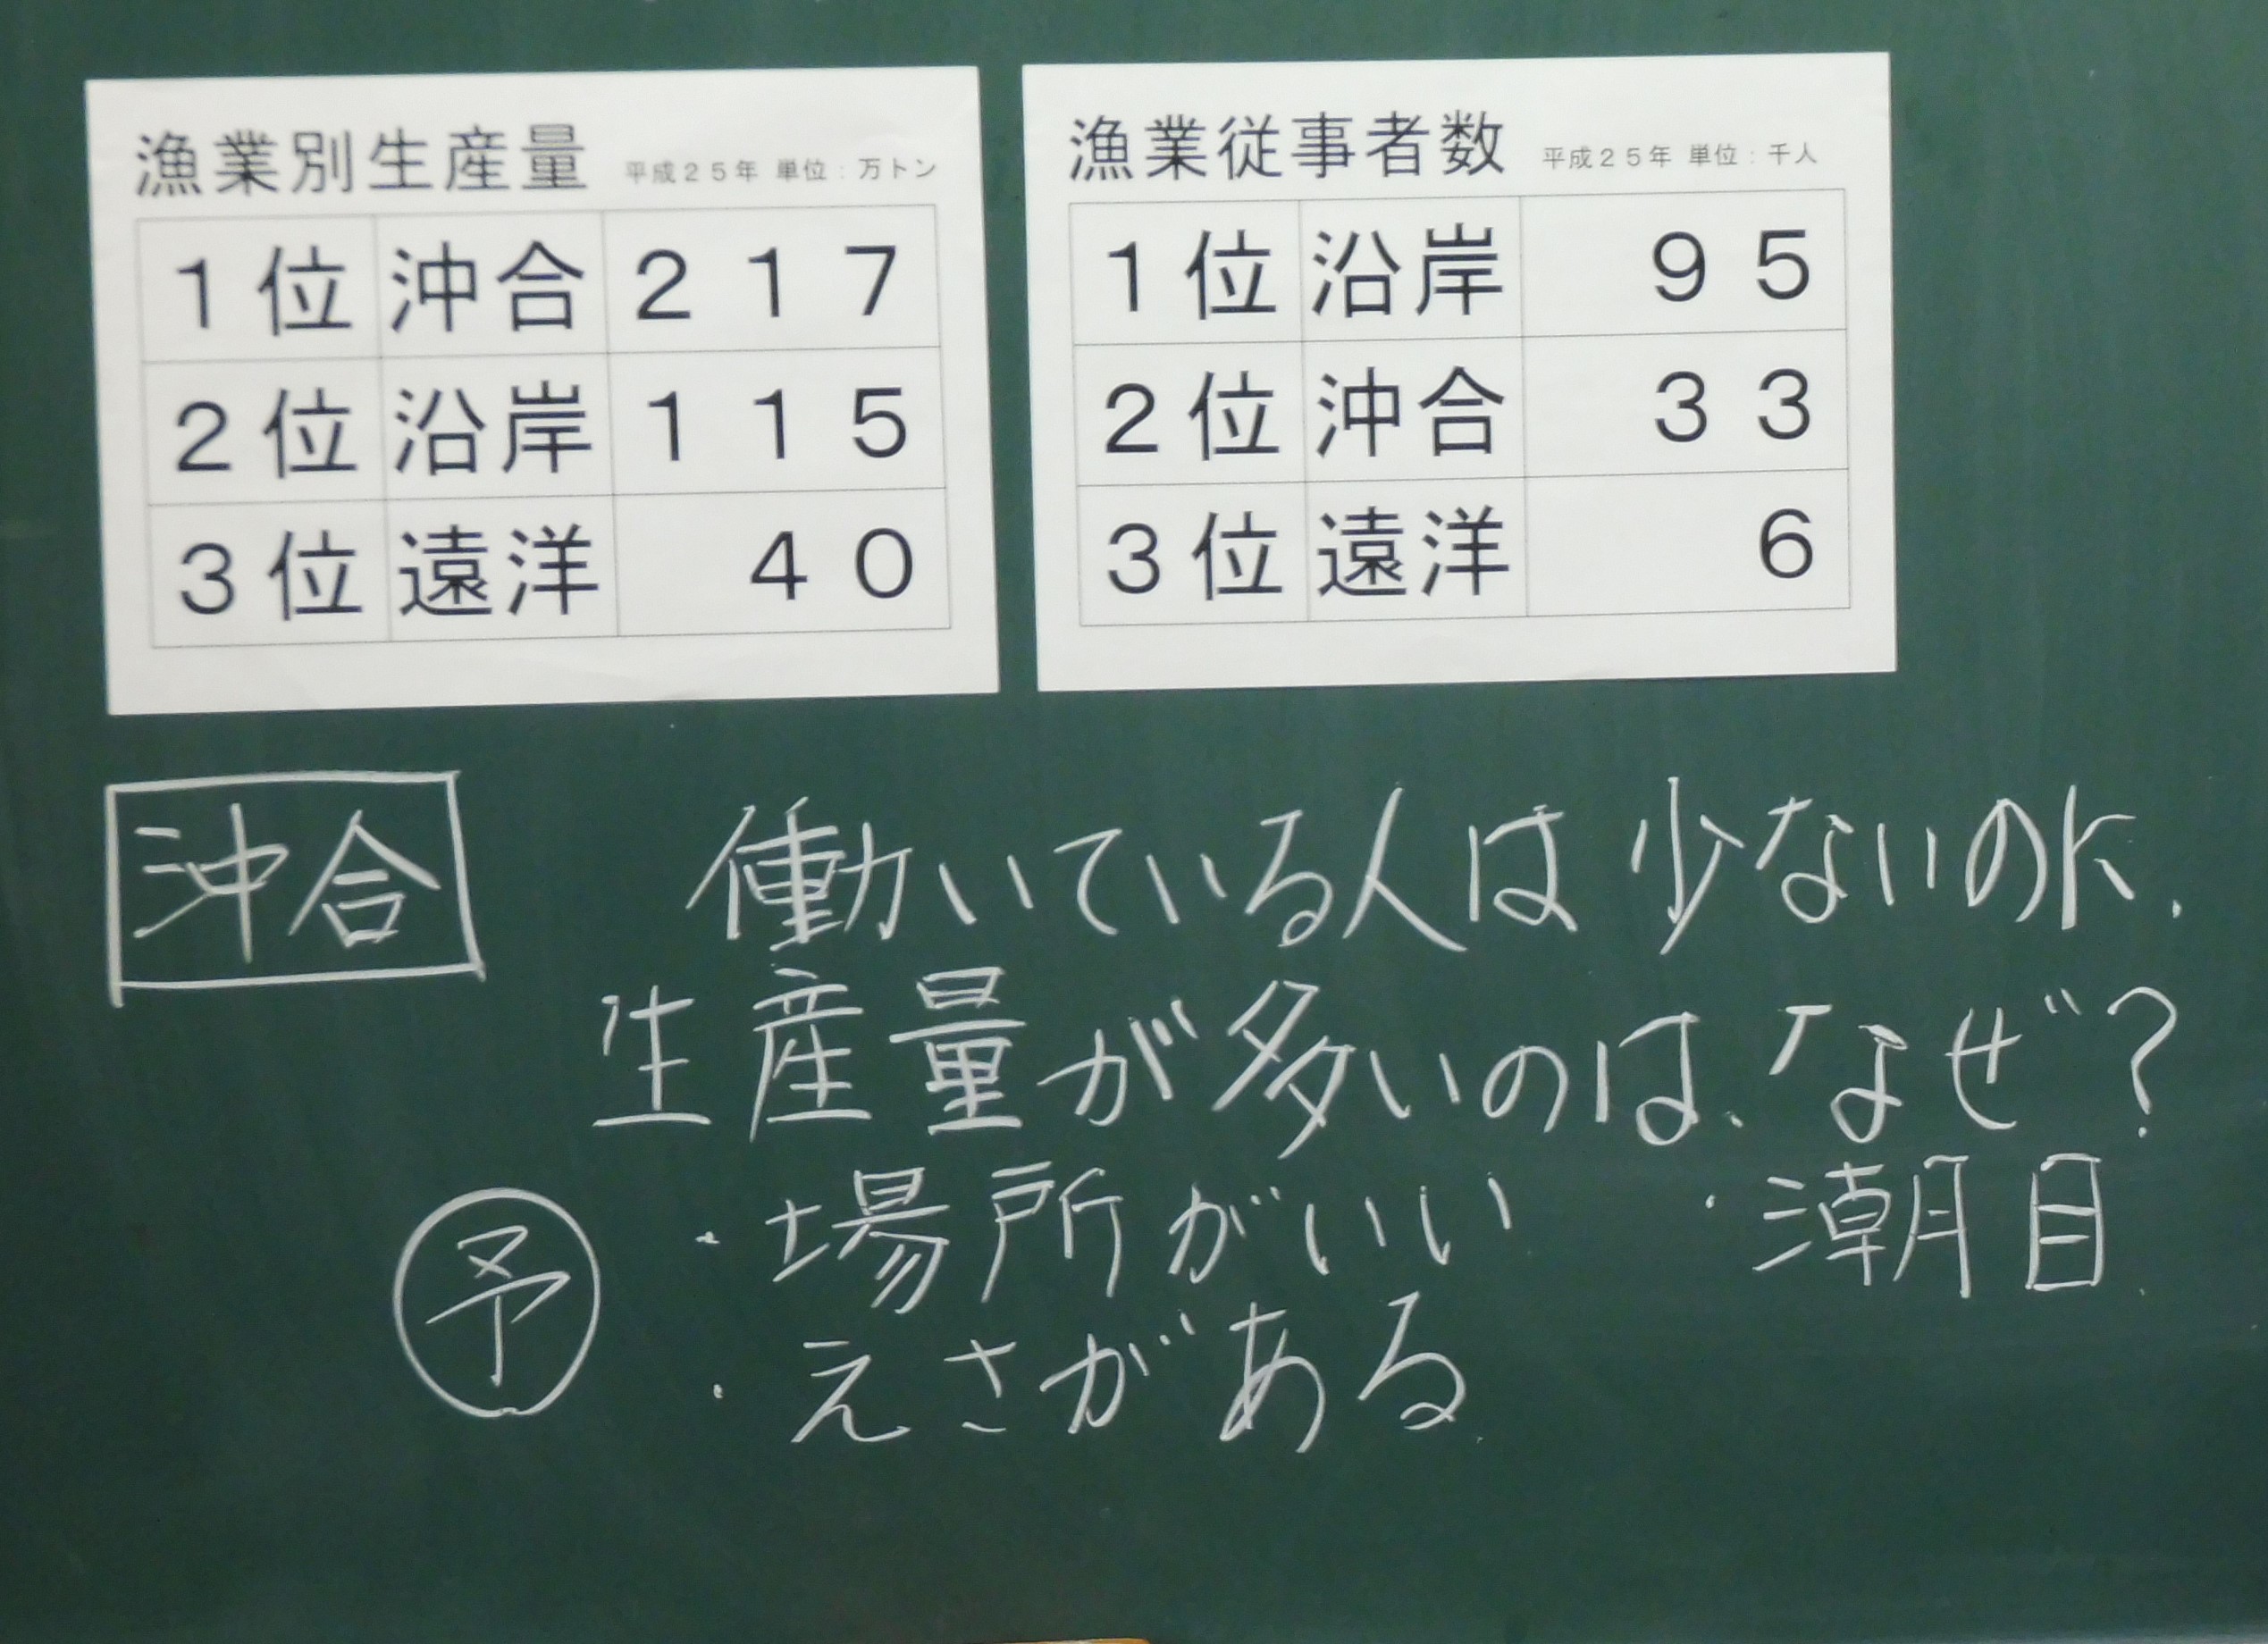 漁業別生産量 平成２５年 単位：万トン
１位 沖合 ２１７
２位 沿岸 １１５
３位 遠洋 ４０
漁業従事者数 平成２５年 単位：千人
１位 沿岸 ９５
２位 沖合 ３３
３位 遠洋 ６
沖合
働いている人は少ないのに、
生産量が多いのは、なぜ？
予
・場所がいい ・潮目
・えさがある